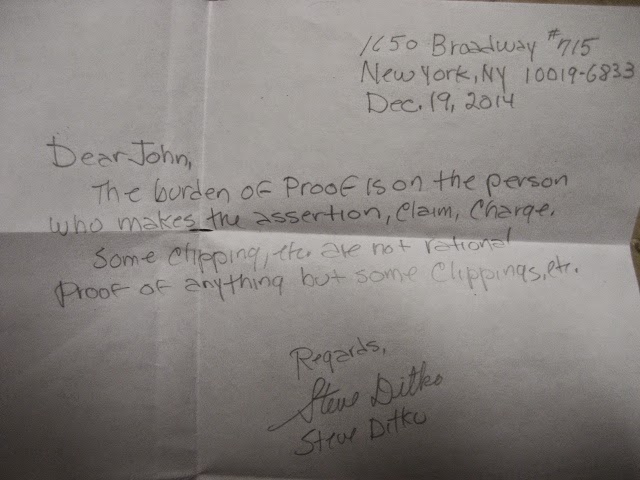 1650 Broadway #715
New York, NY 10019-6833
Dec. 19, 2014
Dear John,
The burden of Proof is on the person
who makes the assertion, claim, charge.
Some clipping, etc. are not rational
Proof of anything but some clippings, etc.
Regards,
Steve Ditko
Steve Ditko